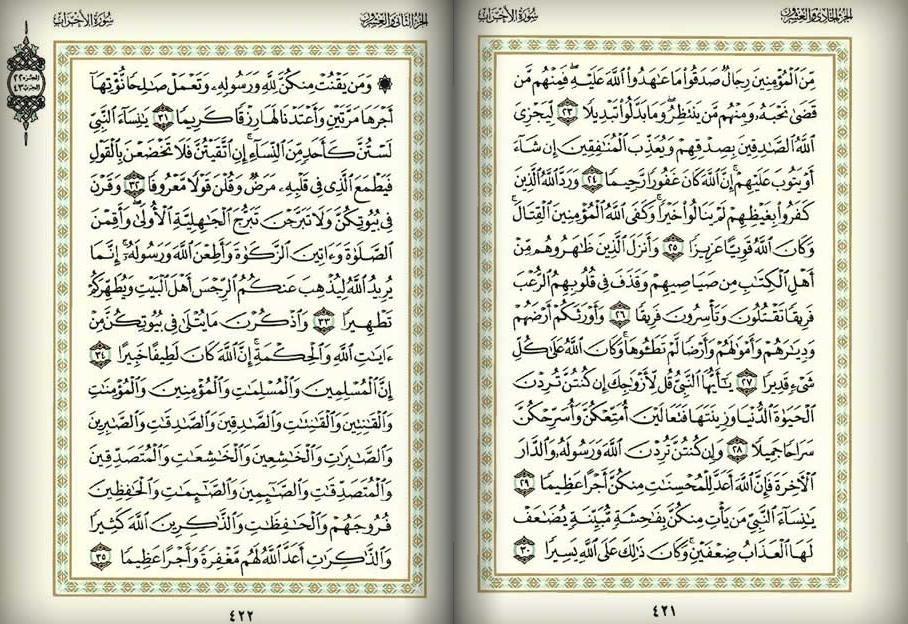 الجزء الحادي والعشرون
سورة الأحزاب
مِّنَ ٱلْمُؤْمِنِينَ رِجَالٌ صَدَقُوا۟ مَا عَٰهَدُوا۟ ٱللَّهَ عَلَيْهِ ۖ فَمِنْهُم مَّن
قَضَىٰ نَحْبَهُۥ وَمِنْهُم مَّن يَنتَظِرُ ۖ وَمَا بَدَّلُوا۟ تَبْدِيلًا ٢٣ لِّيَجْزِىَ
ٱللَّهُ ٱلصَّٰدِقِينَ بِصِدْقِهِمْ وَيُعَذِّبَ ٱلْمُنَٰفِقِينَ إِن شَآءَ
أَوْ يَتُوبَ عَلَيْهِمْ ۚ إِنَّ ٱللَّهَ كَانَ غَفُورًا رَّحِيمًا ٢٤ وَرَدَّ ٱللَّهُ ٱلَّذِينَ
كَفَرُوا۟ بِغَيْظِهِمْ لَمْ يَنَالُوا۟ خَيْرًا ۚ وَكَفَى ٱللَّهُ ٱلْمُؤْمِنِينَ ٱلْقِتَالَ ۚ
وَكَانَ ٱللَّهُ قَوِيًّا عَزِيزًا ٢٥ وَأَنزَلَ ٱلَّذِينَ ظَٰهَرُوهُم مِّنْ
أَهْلِ ٱلْكِتَٰبِ مِن صَيَاصِيهِمْ وَقَذَفَ فِى قُلُوبِهِمُ ٱلرُّعْبَ
فَرِيقًا تَقْتُلُونَ وَتَأْسِرُونَ فَرِيقًا ٢٦ وَأَوْرَثَكُمْ أَرْضَهُمْ
وَدِيَٰرَهُمْ وَأَمْوَٰلَهُمْ وَأَرْضًا لَّمْ تَطَـُٔوهَا ۚ وَكَانَ ٱللَّهُ عَلَىٰ كُلِّ
شَىْءٍ قَدِيرًا ٢٧ يَٰٓأَيُّهَا ٱلنَّبِىُّ قُل لِّأَزْوَٰجِكَ إِن كُنتُنَّ تُرِدْنَ
ٱلْحَيَوٰةَ ٱلدُّنْيَا وَزِينَتَهَا فَتَعَالَيْنَ أُمَتِّعْكُنَّ وَأُسَرِّحْكُنَّ
سَرَاحًا جَمِيلًا ٢٨ وَإِن كُنتُنَّ تُرِدْنَ ٱللَّهَ وَرَسُولَهُۥ وَٱلدَّارَ
ٱلْءَاخِرَةَ فَإِنَّ ٱللَّهَ أَعَدَّ لِلْمُحْسِنَٰتِ مِنكُنَّ أَجْرًا عَظِيمًا ٢٩
يَٰنِسَآءَ ٱلنَّبِىِّ مَن يَأْتِ مِنكُنَّ بِفَٰحِشَةٍ مُّبَيِّنَةٍ يُضَٰعَفْ
لَهَا ٱلْعَذَابُ ضِعْفَيْنِ ۚ وَكَانَ ذَٰلِكَ عَلَى ٱللَّهِ يَسِيرًا ٣٠
٤٢١
الجزء الثاني والعشرون
سورة الأحزاب
الجزء ٢٢
الحزب ٤٣
۞ وَمَن يَقْنُتْ مِنكُنَّ لِلَّهِ وَرَسُولِهِۦ وَتَعْمَلْ صَٰلِحًا نُّؤْتِهَآ
أَجْرَهَا مَرَّتَيْنِ وَأَعْتَدْنَا لَهَا رِزْقًا كَرِيمًا ٣١ يَٰنِسَآءَ ٱلنَّبِىِّ
لَسْتُنَّ كَأَحَدٍ مِّنَ ٱلنِّسَآءِ ۚ إِنِ ٱتَّقَيْتُنَّ فَلَا تَخْضَعْنَ بِٱلْقَوْلِ
فَيَطْمَعَ ٱلَّذِى فِى قَلْبِهِۦ مَرَضٌ وَقُلْنَ قَوْلًا مَّعْرُوفًا ٣٢ وَقَرْنَ
فِى بُيُوتِكُنَّ وَلَا تَبَرَّجْنَ تَبَرُّجَ ٱلْجَٰهِلِيَّةِ ٱلْأُولَىٰ ۖ وَأَقِمْنَ
ٱلصَّلَوٰةَ وَءَاتِينَ ٱلزَّكَوٰةَ وَأَطِعْنَ ٱللَّهَ وَرَسُولَهُۥٓ ۚ إِنَّمَا
يُرِيدُ ٱللَّهُ لِيُذْهِبَ عَنكُمُ ٱلرِّجْسَ أَهْلَ ٱلْبَيْتِ وَيُطَهِّرَكُمْ
تَطْهِيرًا ٣٣ وَٱذْكُرْنَ مَا يُتْلَىٰ فِى بُيُوتِكُنَّ مِنْ
ءَايَٰتِ ٱللَّهِ وَٱلْحِكْمَةِ ۚ إِنَّ ٱللَّهَ كَانَ لَطِيفًا خَبِيرًا ٣٤
إِنَّ ٱلْمُسْلِمِينَ وَٱلْمُسْلِمَٰتِ وَٱلْمُؤْمِنِينَ وَٱلْمُؤْمِنَٰتِ
وَٱلْقَٰنِتِينَ وَٱلْقَٰنِتَٰتِ وَٱلصَّٰدِقِينَ وَٱلصَّٰدِقَٰتِ وَٱلصَّٰبِرِينَ
وَٱلصَّٰبِرَٰتِ وَٱلْخَٰشِعِينَ وَٱلْخَٰشِعَٰتِ وَٱلْمُتَصَدِّقِينَ
وَٱلْمُتَصَدِّقَٰتِ وَٱلصَّٰٓئِمِينَ وَٱلصَّٰٓئِمَٰتِ وَٱلْحَٰفِظِينَ
فُرُوجَهُمْ وَٱلْحَٰفِظَٰتِ وَٱلذَّٰكِرِينَ ٱللَّهَ كَثِيرًا
وَٱلذَّٰكِرَٰتِ أَعَدَّ ٱللَّهُ لَهُم مَّغْفِرَةً وَأَجْرًا عَظِيمًا ٣٥
٤٢٢